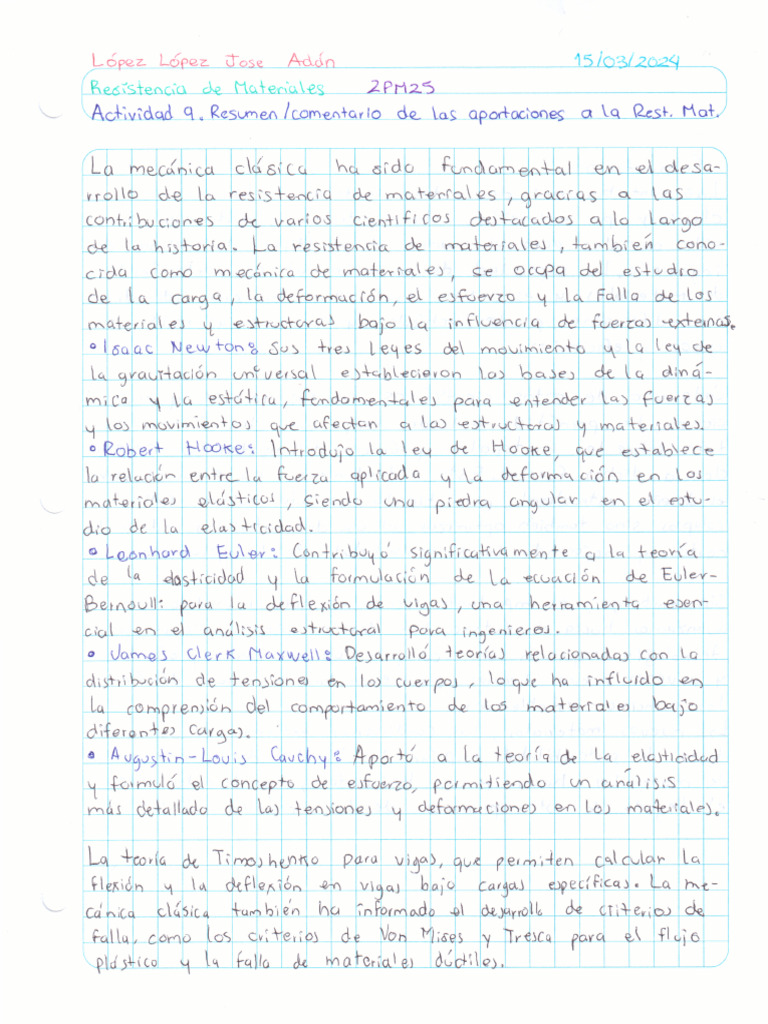 López López Jose Adán 15/03/2024
Resistencia de Materiales 2PM25
Actividad 9. Resumen/comentario de las aportaciones a la Rest. Mat.
La mecánica clásica ha sido fundamental en el desa-
rrollo de la resistencia de materiales, gracias a las
contribuciones de varios científicos destacados a lo largo
de la historia. La resistencia de materiales, también cono-
cida como mecánica de materiales, se ocupa del estudio
de la carga, la deformación, el esfuerzo y la falla de los
materiales y estructuras bajo la influencia de fuerzas externas.
• Isaac Newton: Sus tres leyes del movimiento y la ley de
la gravitación universal establecieron las bases de la diná-
mica y la estática, fundamentales para entender las fuerzas
y los movimientos que afectan a las estructuras y materiales.
• Robert Hooke: Introdujo la ley de Hooke, que establece
la relación entre la fuerza aplicada y la deformación en los
materiales elásticos, siendo una piedra angular en el estu-
dio de la elasticidad.
• Leonhard Euler: Contribuyó significativamente a la teoría
de la elasticidad y la formulación de la ecuación de Euler-
Bernoulli para la deflexión de vigas, una herramienta esen-
cial en el análisis estructural para ingenieros.
• James Clerk Maxwell: Desarrolló teorías relacionadas con la
distribución de tensiones en los cuerpos, lo que ha influido en
la comprensión del comportamiento de los materiales bajo
diferentes cargas.
• Augustin-Louis Cauchy: Aportó a la teoría de la elasticidad
y formuló el concepto de esfuerzo, permitiendo un análisis
más detallado de las tensiones y deformaciones en los materiales.
La teoría de Timoshenko para vigas, que permiten calcular la
flexión y la deflexión en vigas bajo cargas específicas. La me-
cánica clásica también ha informado el desarrollo de criterios de
falla, como los criterios de Von Mises y Tresca para el flujo
plástico y la falla de materiales dúctiles.